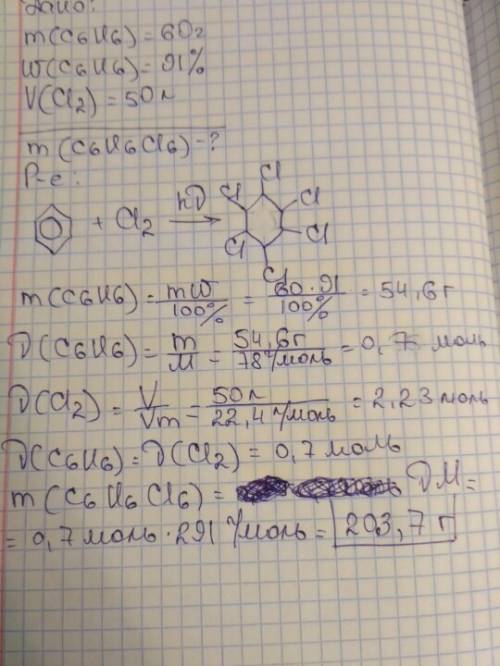 Дано:
m(C6H6) = 60г
W(C6H6) = 91%
V(Cl2) = 50л
m(C6H6Cl6) - ?
Р-е:
+ Cl2 hν → Cl Cl Cl Cl Cl Cl
m(C6H6) = mW/100% = 60·91/100% = 54,6г
ν(C6H6) = m/M = 54,6г/78г/моль = 0,7 моль
ν(Cl2) = V/Vm = 50л/22,4л/моль = 2,23 моль
ν(C6H6) = ν(Cl2) = 0,7 моль
m(C6H6Cl6) = νM =
= 0,7 моль · 291 г/моль = 203,7 г